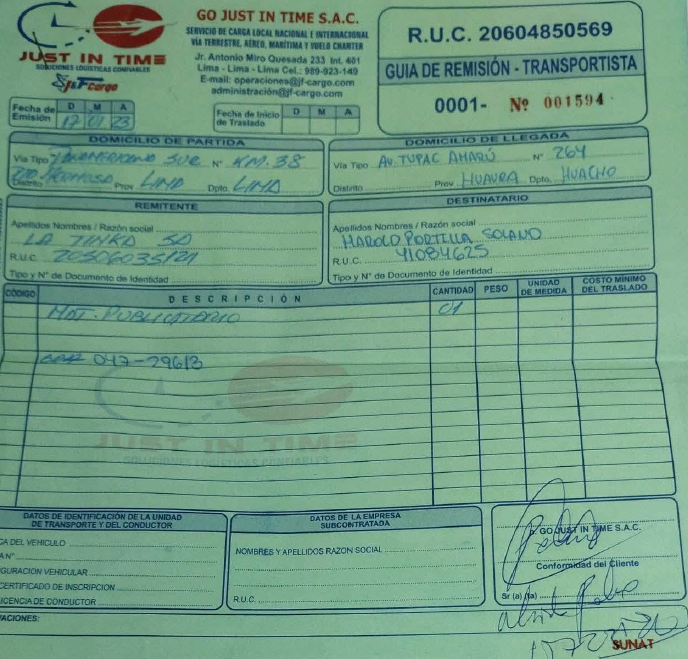 JUST IN TIME
SOLUCIONES LOGÍSTICAS CONFIABLES
J&F Cargo
GO JUST IN TIME S.A.C.
SERVICIO DE CARGA LOCAL NACIONAL E INTERNACIONAL
VÍA TERRESTRE, AEREO, MARÍTIMA Y VUELO CHARTER
Jr. Antonio Miro Quesada 233 Int. 401
Lima - Lima - Lima Cel.: 989-923-149
E-mail: operaciones@jf-cargo.com
administración@jf-cargo.com
R.U.C. 20604850569
GUIA DE REMISIÓN - TRANSPORTISTA
0001- Nº 001594
Fecha de Emisión D M A
17 01 23
Fecha de Inicio de Traslado D M A
DOMICILIO DE PARTIDA
Vía Tipo Panamericana Sur Nº KM. 38
Distrito Prov LIMA Dpto. LIMA
DOMICILIO DE LLEGADA
Vía Tipo AV. TUPAC AMARÚ Nº 264
Distrito Prov HUAURA Dpto. HUACHO
REMITENTE
Apellidos Nombres / Razón social
LA TINKA SA
R.U.C. 20506035121
Tipo y Nº de Documento de Identidad
DESTINATARIO
Apellidos Nombres / Razón social
HAROLD PORTILLA SOLANO
R.U.C. 41084625
Tipo y Nº de Documento de Identidad
CÓDIGO DESCRIPCIÓN CANTIDAD PESO UNIDAD DE MEDIDA COSTO MÍNIMO DEL TRASLADO
MAT. PUBLICITARIO 01
047-29613
JUST IN TIME
SOLUCIONES LOGÍSTICAS CONFIABLES
DATOS DE IDENTIFICACIÓN DE LA UNIDAD
DE TRANSPORTE Y DEL CONDUCTOR
CA DEL VEHICULO
A Nº
GURACIÓN VEHICULAR
CERTIFICADO DE INSCRIPCION
ICENCIA DE CONDUCTOR
DATOS DE LA EMPRESA
SUBCONTRATADA
NOMBRES Y APELLIDOS RAZON SOCIAL
R.U.C.
p. GO JUST IN TIME S.A.C.
Conformidad del Cliente
Sr (a) (ta)
VACIONES:
SUNAT